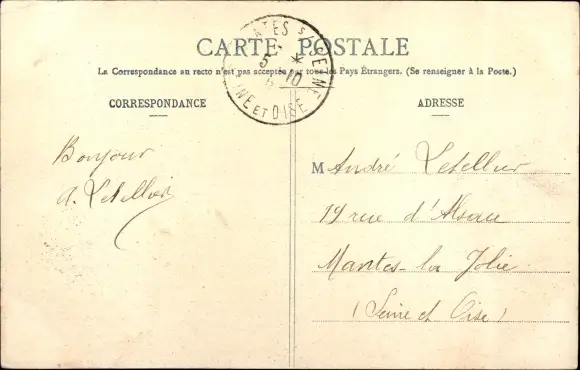 CARTE POSTALE
La Correspondance au recto n'est pas acceptée par tous les Pays Étrangers. (Se renseigner à la Poste.)
CORRESPONDANCE
ADRESSE
5
*
10
SEINE ET OISE
Bonjour
A. Letellier
M André Letellier
19 rue d'Alsace
Mantes-la Jolie
(Seine et Oise)